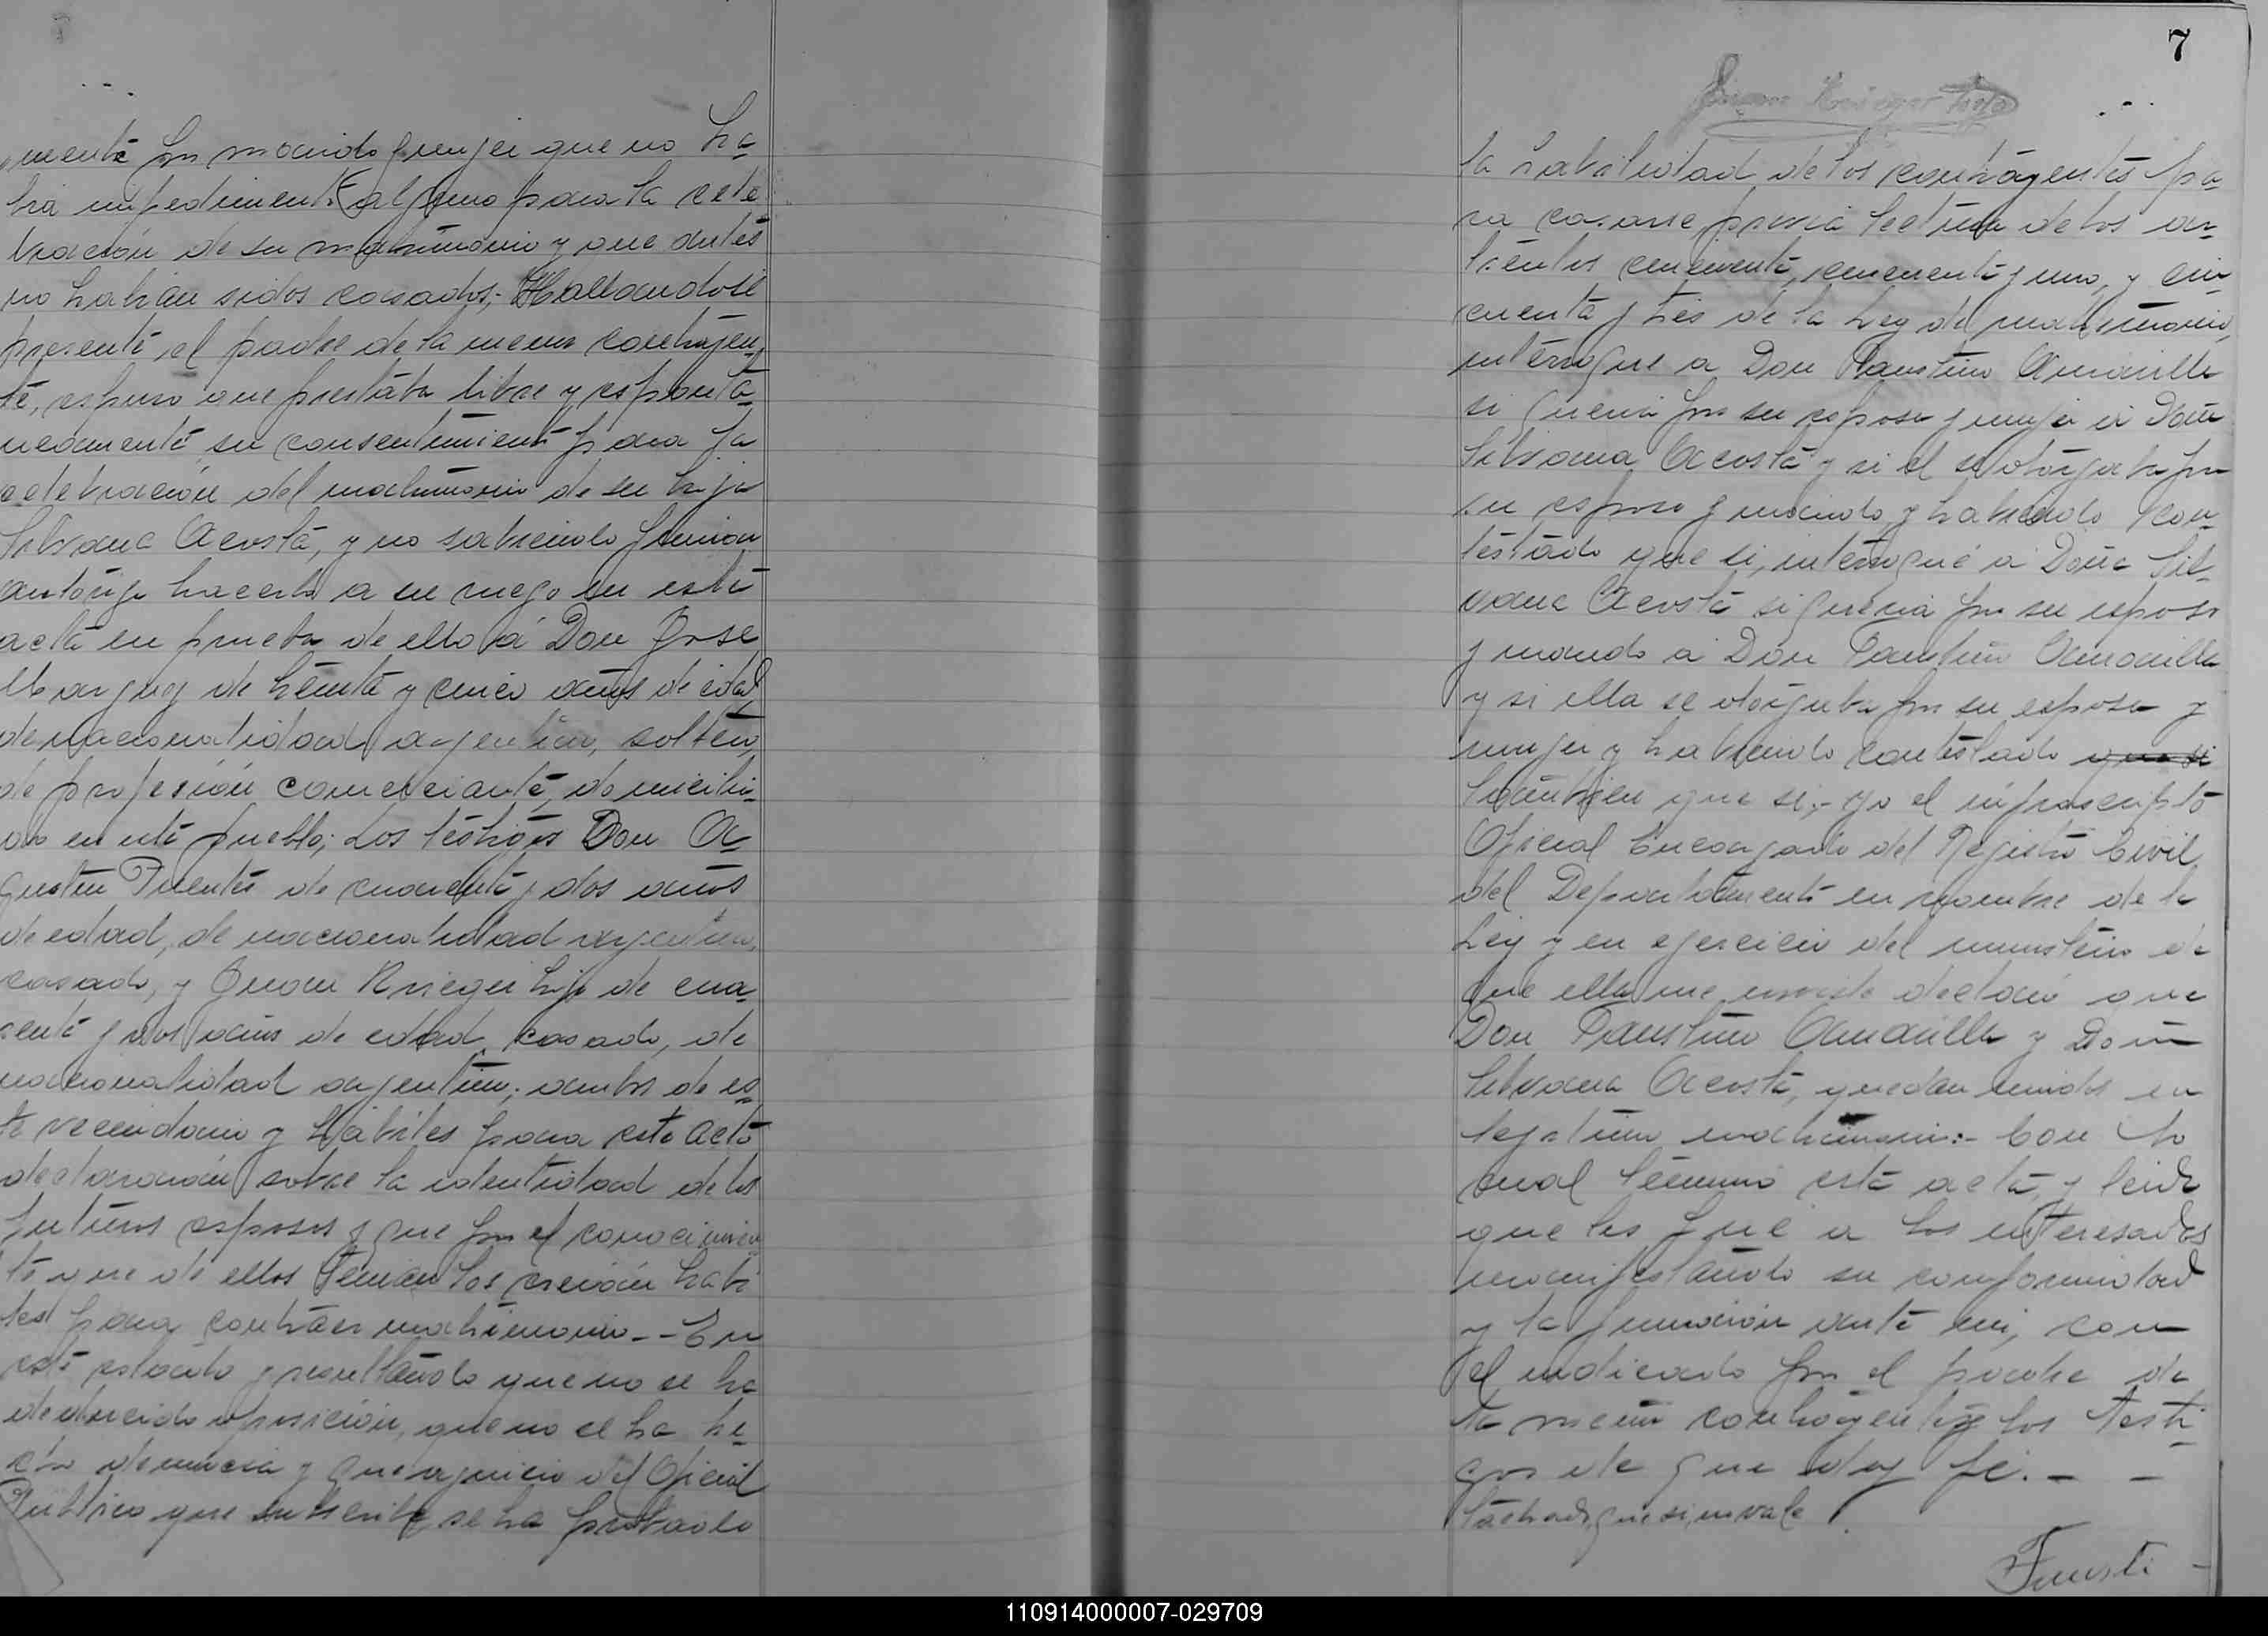 mente por marido y mujer que no ha_
bia impedimento alguno para la cele
bración de su matrimonio y que antes
no habian sidos casados;- Hallandose
presente el padre de la menor contrayen_
te, espuso que prestaba libre y espontá_
neamente su consentimiento para la
celebración del matrimonio de su hija
Silvana Acosta, y no sabiendo firmar
autorizo hacerlo a su ruego en esta
acta en prueba de ello á Don Jose
Marquez de treinta y cinco años de edad,
de nacionalidad argentina, soltero,
de profesión comerciante, domicilia_
do en este pueblo; Los testigos Don A_
gustin Fuentes de cuarenta y dos años
de edad, de nacionalidad argentina,
casado, y Juan Krieger hijo de cua_
renta y dos años de edad, casado, de
nacionalidad argentina; ambos de es_
te vecindario y hábiles para este acto
declararon sobre la identidad de los
futuros esposos y que por el conocimien_
to que de ellos tenian los creian habi
les para contraer matrimonio.-- En
este estado y resultando que no se ha
deducido oposición, que no se ha he_
cho denuncia y que a juicio del Oficial
Público que suscribe, se ha probado
7
Juan Krieger hijo
la habilidad de los contrayentes pa_
ra casarse, previa lectura de los ar_
ticulos cincuenta, cincuenta y uno, y cin_
cuenta y tres de la Ley de matrimonio,
interrogue a Don Faustino Amarilla
si queria por su esposa y mujer á Doña
Silvana Acosta y si el se otorgaba por
su esposo y marido, y habiendo con_
testado que si, interrogué á Doña Sil_
vana Acosta si queria por su esposo
y marido a Don Faustino Amarilla
y si ella se otorgaba por su esposa y
mujer y habiendo contestado que si
tambien que si;- yo el infrascripto
Oficial Encargado del Registro Civil,
del Departamento en nombre de la
Ley y en ejercicio del ministerio de
que ella me inviste declaré que
Don Faustino Amarilla y Doña
Silvana Acosta, quedan unidos en
legitimo matrimonio:- Con lo
cual terminó esta acta, y leida
que les fué a los interesados
manifestando su conformidad
y la firmaron ante mi, con
el indicado por el padre de
la menor contrayente y los testi_
gos de que doy fé.- -
Tachado, que si, no vale
Fausti-
110914000007-029709